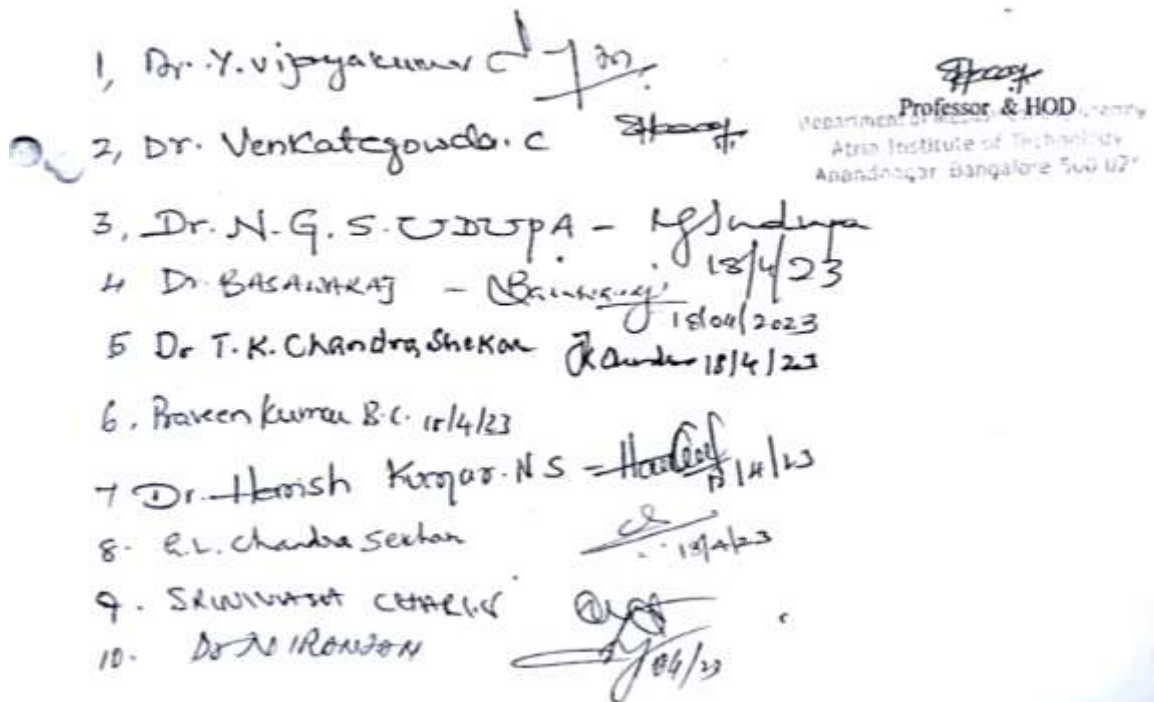 1, Dr. Y. Vijayakumar
2, Dr. Venkategowda. C
Professor & HOD
Department of
Atria Institute of Technology
Anandnagar Bangalore 560 024
3, Dr. N. G. S. UDUPA - NGSudupa
18/4/23
4 Dr. BASAWARAJ -
18/04/2023
5 Dr T. K. Chandra Shekar 18/4/23
6. Praveen Kumar B.C. 18/4/23
7 Dr. Harish Kumar. N S - 18/4/23
8. Chandra Sekhar
18/4/23
9. SRINIVASA CHARI.
10. Dr NIRANJAN
04/23